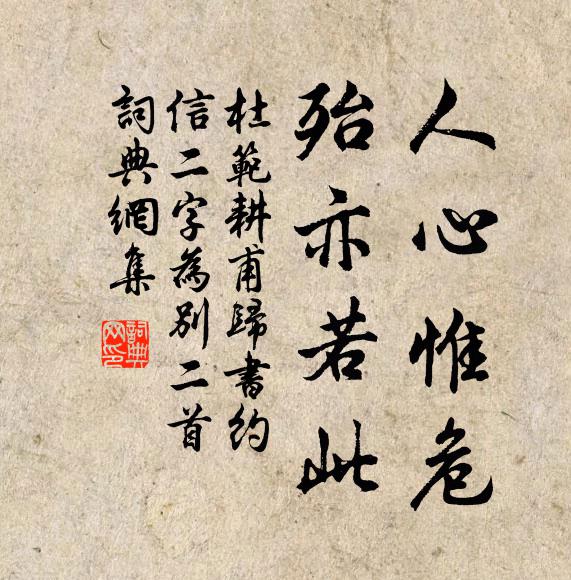 人心惟危
殆亦若此
杜範耕甫歸書約
信二字為別二首
詞典網集
詞典网印